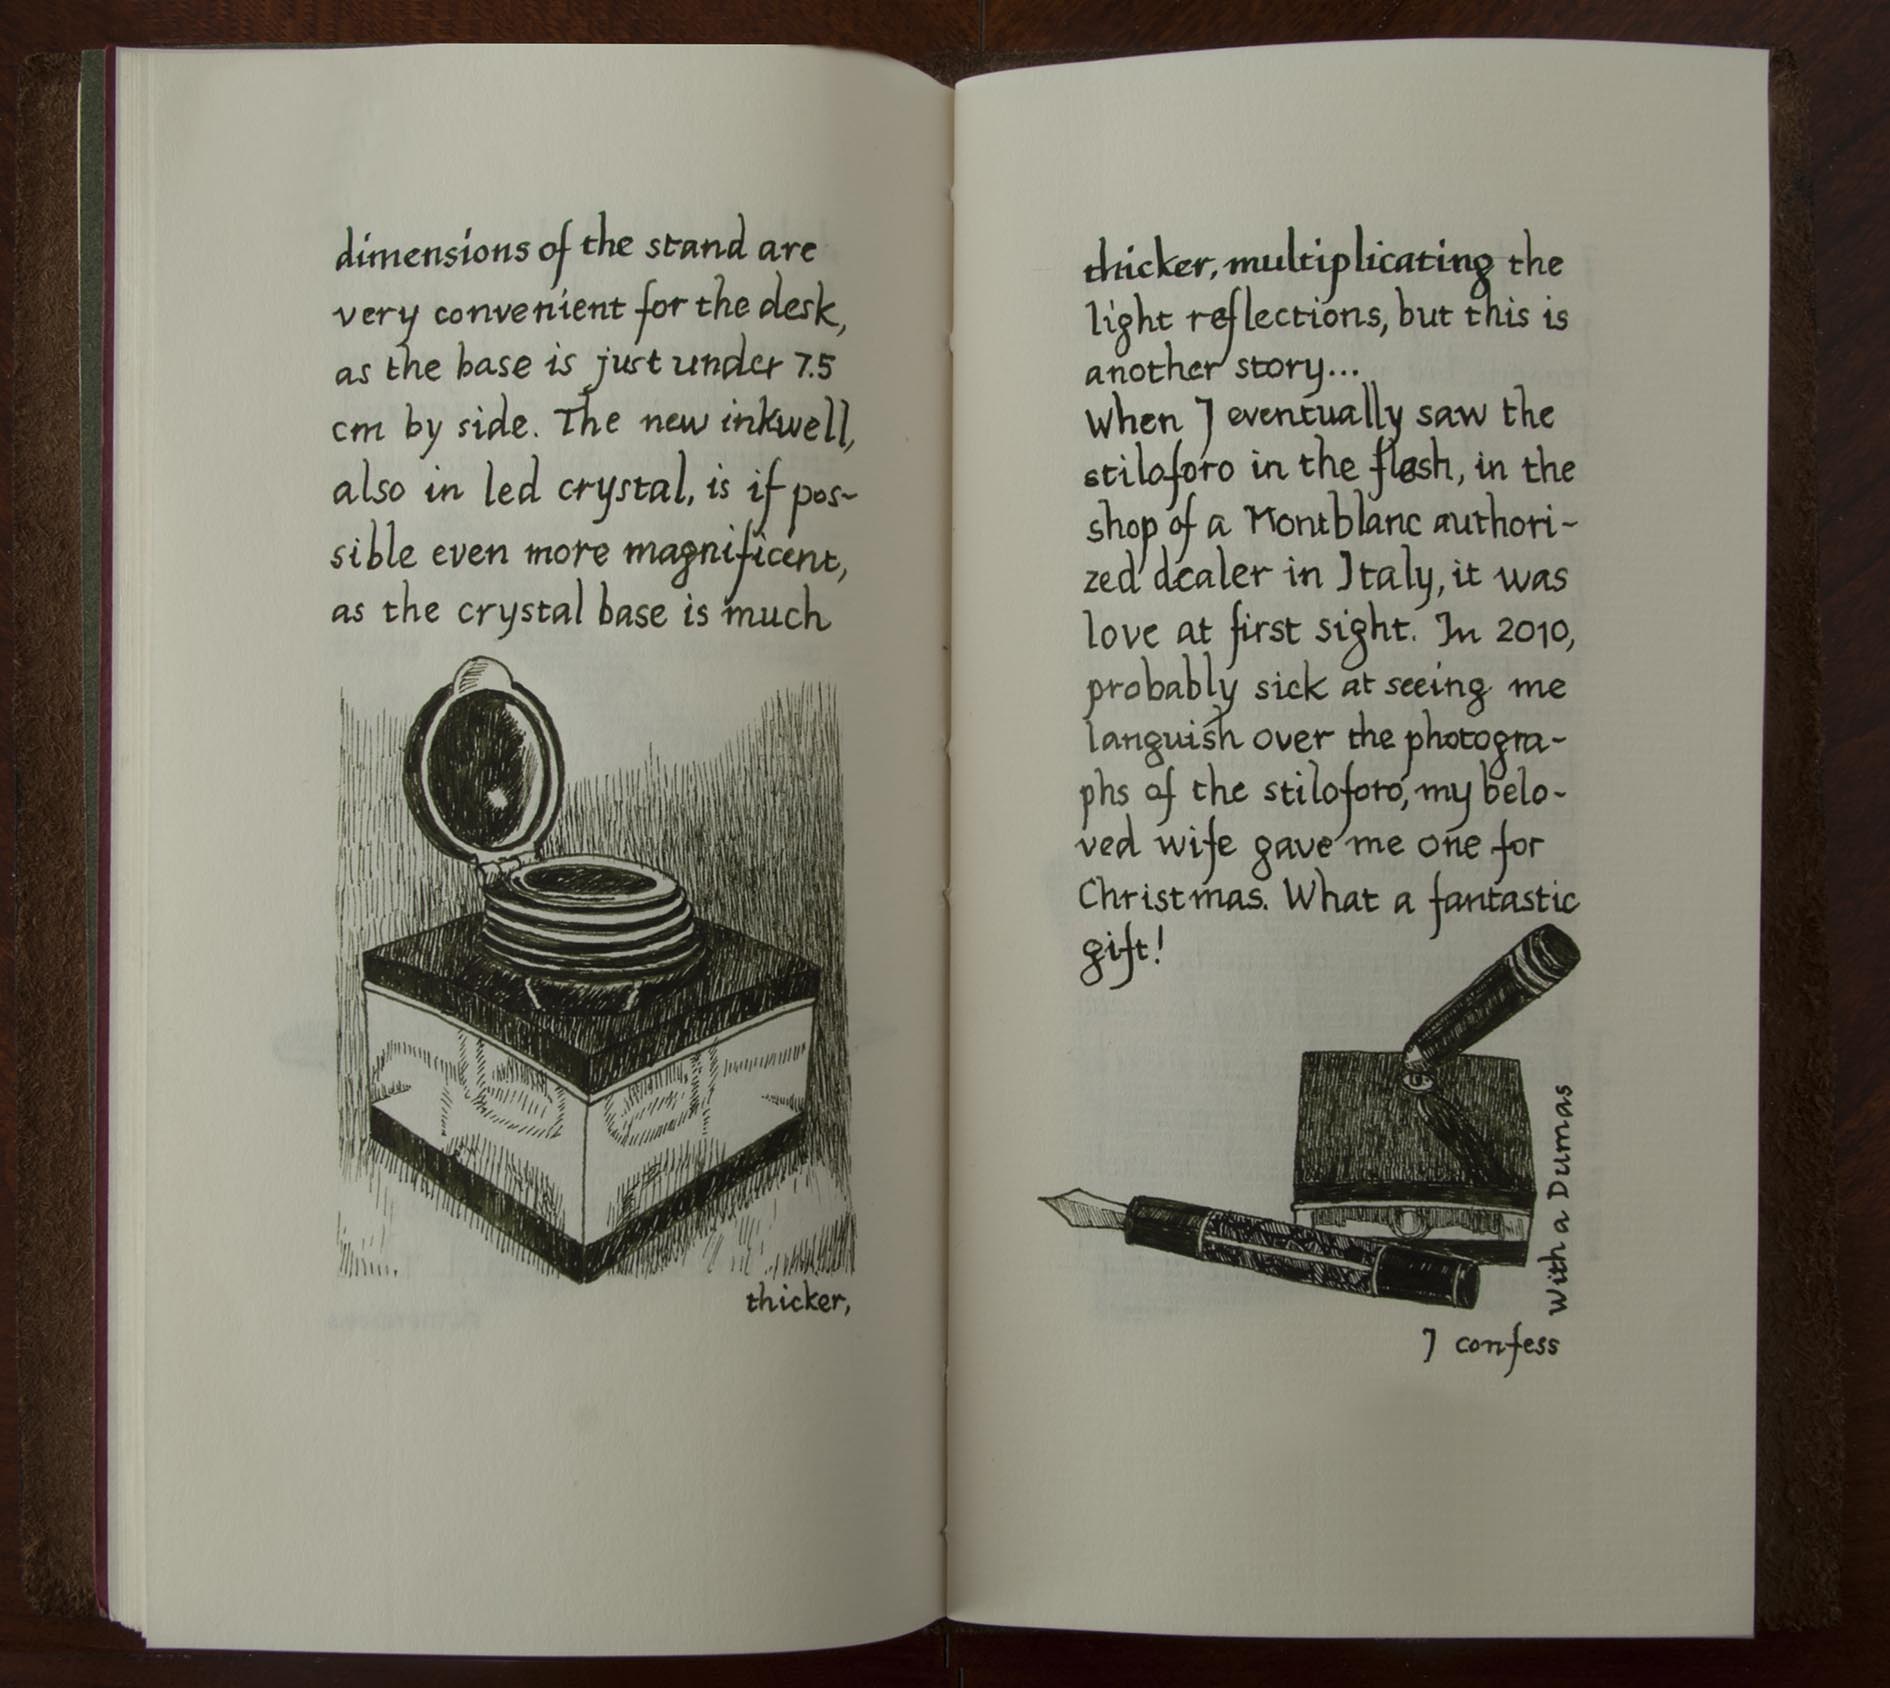 dimensions of the stand are
very convenient for the desk,
as the base is just under 7.5
cm by side. The new inkwell,
also in led crystal, is if pos-
sible even more magnificent,
as the crystal base is much
thicker,
thicker, multiplicating the
light reflections, but this is
another story...
When I eventually saw the
stiloforo in the flesh, in the
shop of a Montblanc authori-
zed dealer in Italy, it was
love at first sight. In 2010,
probably sick at seeing me
languish over the photogra-
phs of the stiloforo, my belo-
ved wife gave me one for
Christmas. What a fantastic
gift!
With a Dumas
I confess